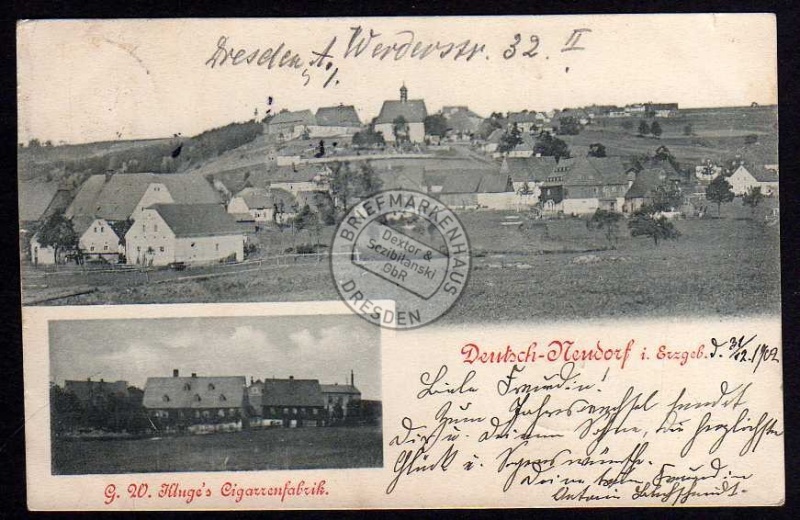 Dresden A. Werderstr. 32. II
BRIEFMARKENHAUS
Dextor &
Sczibilanski
GbR
DRESDEN
Deutsch-Neudorf i. Erzgeb. d. 31/12. 1902
Liebe Freundin!
Zum Jahreswechsel sendet
Dir u. Deinem Sohne, die herzlichste
Glück u. Segenswünsche.
Deine Freundin
G. W. Kluge's Cigarrenfabrik.